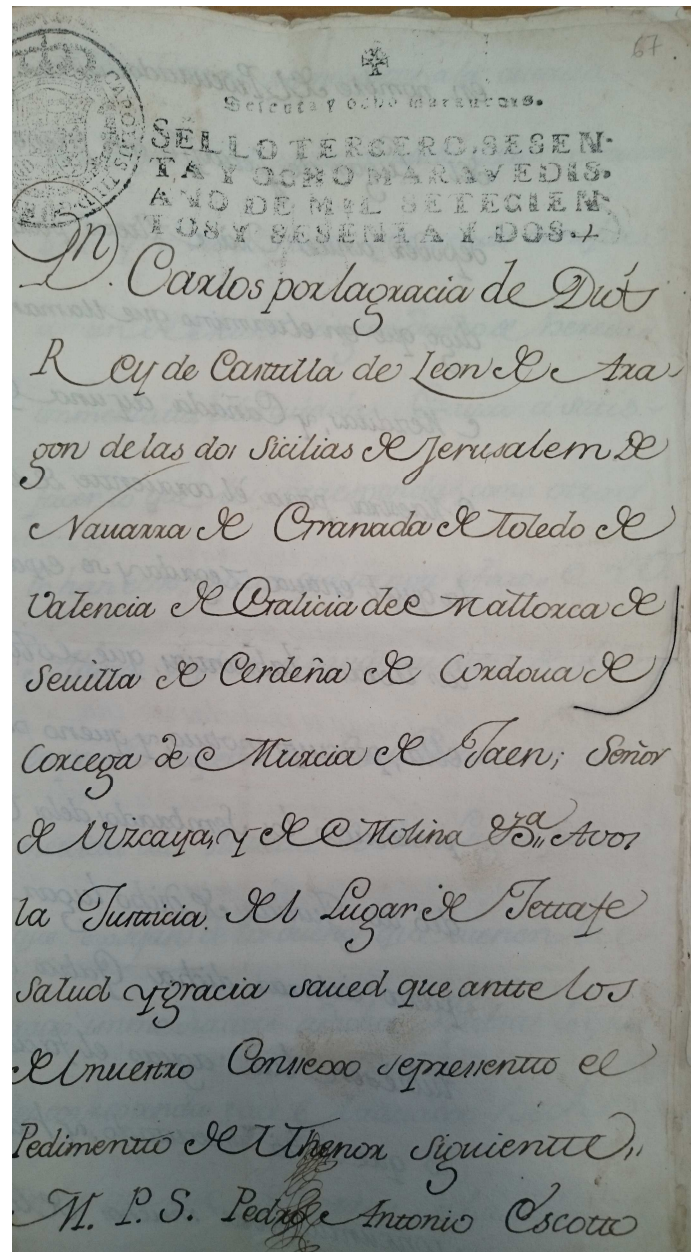 67.
CAROLUS III D
Sesenta y ocho maravedis.
SELLO TERCERO, SESEN-
TA Y OCHO MARAVEDIS,
AÑO DE MIL SETECIEN-
TOS Y SESENTA Y DOS.
Dn Carlos por la gracia de Dios
Rey de Castilla de Leon de Ara
gon de las dos Sicilias de Jerusalem de
Nauarra de Granada de Toledo de
Valencia de Galicia de Mallorca de
Seuilla de Cerdeña de Cordoua de
Corcega de Murcia de Jaen; Señor
de Vizcaya, y de Molina &a. Avos
la Justicia del Lugar de Jettafe
Salud y gracia saued que antte los
del nuestro Conssexo sepresentto el
Pedimentto del thenor Siguientte,,
M. P. S. Pedro Antonio Escotto